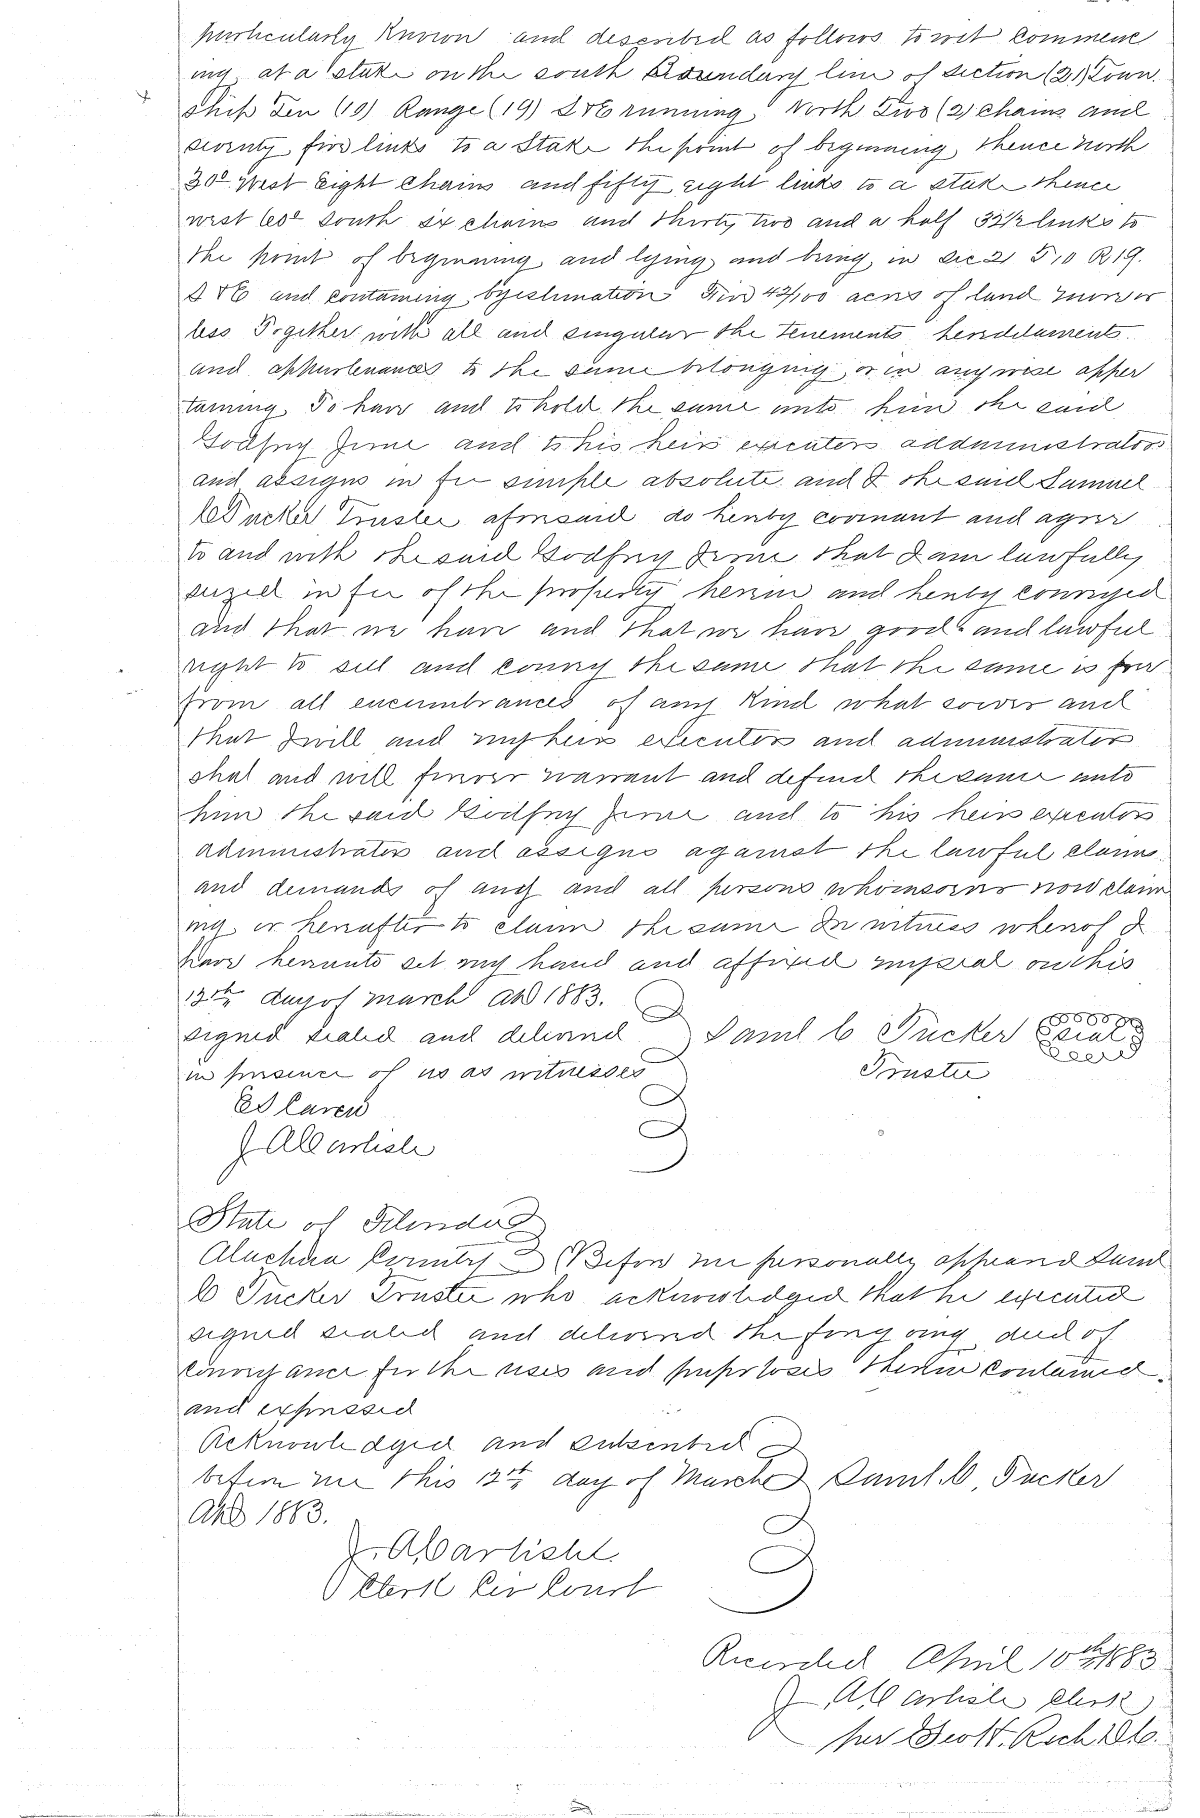 particularly Known and described as follows to wit Commenc
ing at a stake on the south Boundary line of Section (21) Town
ship Ten (10) Range (19) S & E running North Two (2) chains and
seventy five links to a Stake the point of beginning, thence North
30° West Eight Chains and fifty eight links to a stake thence
west 60° South six chains and thirty two and a half 32½ links to
the point of beginning and lying and being in Sec 21 T 10 R 19.
S & E and containing by estimation Five 42/100 acres of land more or
less Together with all and singular the tenements hereditaments
and appurtenances to the same belonging or in anywise apper
taining To have and to hold the same unto him the said
Godfrey and to his heirs executors addministrators
and assigns in fee simple absolute and I the said Samuel
C Tucker Trustee aforesaid do hereby covenant and agree
to and with the said Godfrey that I am lawfully
seized in fee of the property herein and hereby conveyed
and that we have and that we have good and lawful
right to sell and convey the same that the same is free
from all encumbrances of any Kind what soever and
that I will and my heirs executors and administrators
shal and will forever warrant and defend the same unto
him the said Godfrey and to his heirs executors
administrators and assigns against the lawful claims
and demands of any and all persons whomsoever now claim
ing or hereafter to claim the same In witness whereof I
have hereunto set my hand and affixed my seal on this
12th day of March AD 1883.
signed sealed and delivered Saml C Tucker seal
in presence of us as witnesses Trustee
J A Carlisle
State of Florida
Alachua County Before me personally appeared Saml
C Tucker Trustee who acknowledged that he executed
signed sealed and delivered the foregoing deed of
conveyance for the uses and puprloses therein contained.
and expressed
Acknowledged and subscribed
before me this 12th day of March Saml. C, Tucker
AD 1883.
J. A. Carlisle.
Clerk Cir Court
Recorded April 10th 1883
J A C arlisle Clerk
per Geo H. D.C.